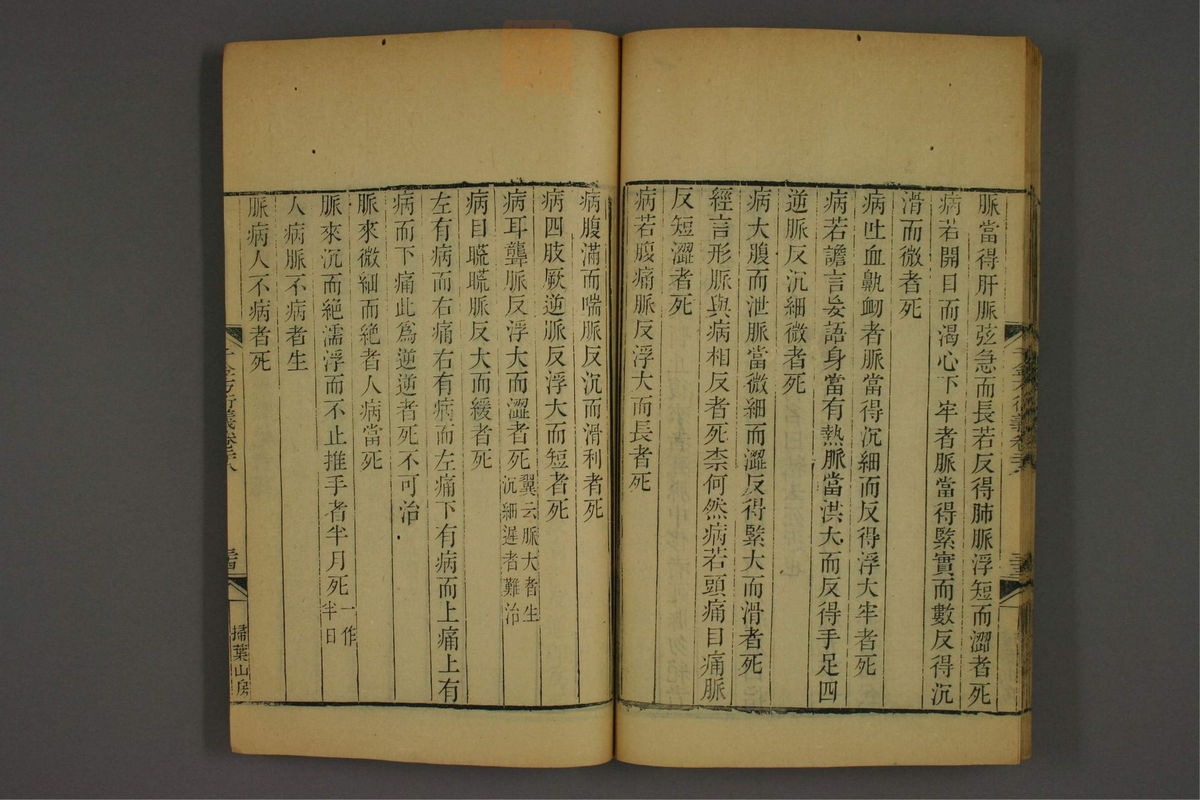 脈當得肝脈弦急而長若反得肺脈浮短而澀者死
病若開目而渴心下牢者脈當得緊實而數反得沉
滑而微者死
病吐血鼽衄者脈當得沉細而反得浮大牢者死
病若譫言妄語身當有熱脈當洪大而反得手足四
逆脈反沉細微者死
病大腹而泄脈當微細而澀反得緊大而滑者死
經言形脈與病相反者死柰何然病若頭痛目痛脈
反短澀者死
病若腹痛脈反浮大而長者死
病腹滿而喘脈反沉而滑利者死
病四肢厥逆脈反浮大而短者死
病耳聾脈反浮大而澀者死翼云脈大者生沉細遲者難治
病目䀮䀮脈反大而緩者死
左有病而右痛右有病而左痛下有病而上痛上有
病而下痛此爲逆逆者死不可治
脈來微細而絶者人病當死
脈來沉而絶濡浮而不止推手者半月死一作半日
人病脈不病者生
脈病人不病者死
千金方衍義卷二十八
掃葉山房